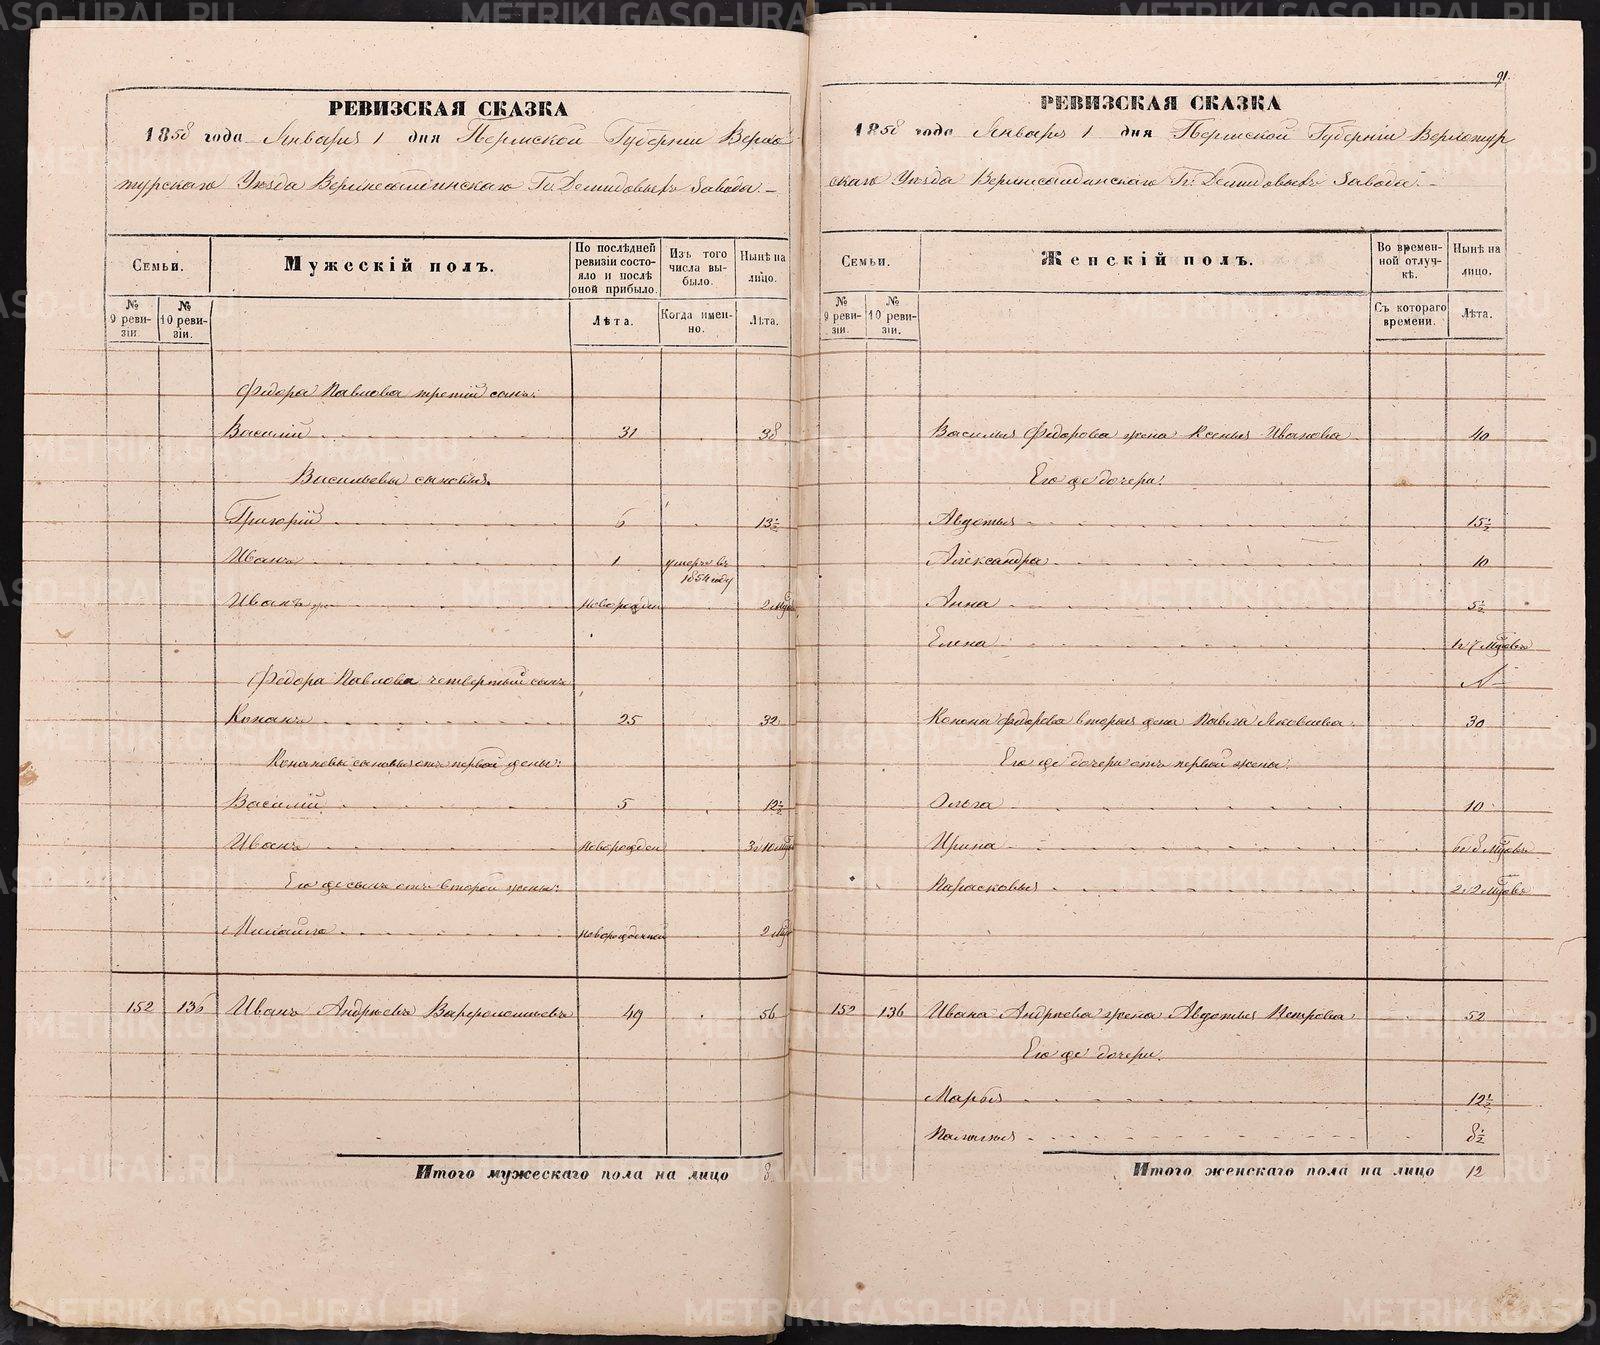 РЕВИЗСКАЯ СКАЗКА
1858 года Января 1 дня Пермской Губернии Верхо
турскаго Уезда Верхнесалдинскаго Гг. Демидовыхъ Завода.
Семьи.
Мужескій полъ.
По послѣдней ревизіи состояло и послѣ оной прибыло.
Изъ того числа выбыло.
Нынѣ на лицо.
№ 9 ревизіи.
№ 10 ревизіи.
Лѣта.
Когда именно.
Лѣта.
Федора Павлова третій сынъ:
Василій 31 38
Васильевы сыновья.
Григорій 6 13½
Иванъ 1 умеръ въ 1854 году
Иванъ новорожден 2 мес
Федора Павлова четвертый сынъ
Кононъ 25 32
Кононовы сыновья отъ первой жены:
Василій 5 12½
Иванъ новорожден 3 г 10 мес
Его же сынъ отъ второй жены:
Михайло новорожденной 2 мес
152 136 Иванъ Андреевъ Варфоломеевъ 49 56
Итого мужескаго пола на лицо 8
91.
РЕВИЗСКАЯ СКАЗКА
1858 года Января 1 дня Пермской Губерніи Верхотур
скаго Уезда Верхнесалдинскаго Гг. Демидовыхъ Завода.
Семьи.
Женскій полъ.
Во временной отлучкѣ.
Нынѣ на лицо.
№ 9 ревизіи.
№ 10 ревизіи.
Съ котораго времени.
Лѣта.
Василья Федорова жена Ксенья Иванова 40
Его же дочери:
Авдотья 15½
Александра 10
Анна 5½
Елена 1 г 7 месовъ
Конона Федорова вторая жена Яковлева 30
Его же дочери отъ первой жены:
Ольга 10
Ирина 6 г 8 месовъ
Парасковья 2 г 2 месовъ
152 136 Ивана Андреева жена Авдотья Петрова 52
Его же дочери.
Марья 12½
Палагья 8½
Итого женскаго пола на лицо 12
METRIKI.GASO-URAL.RU